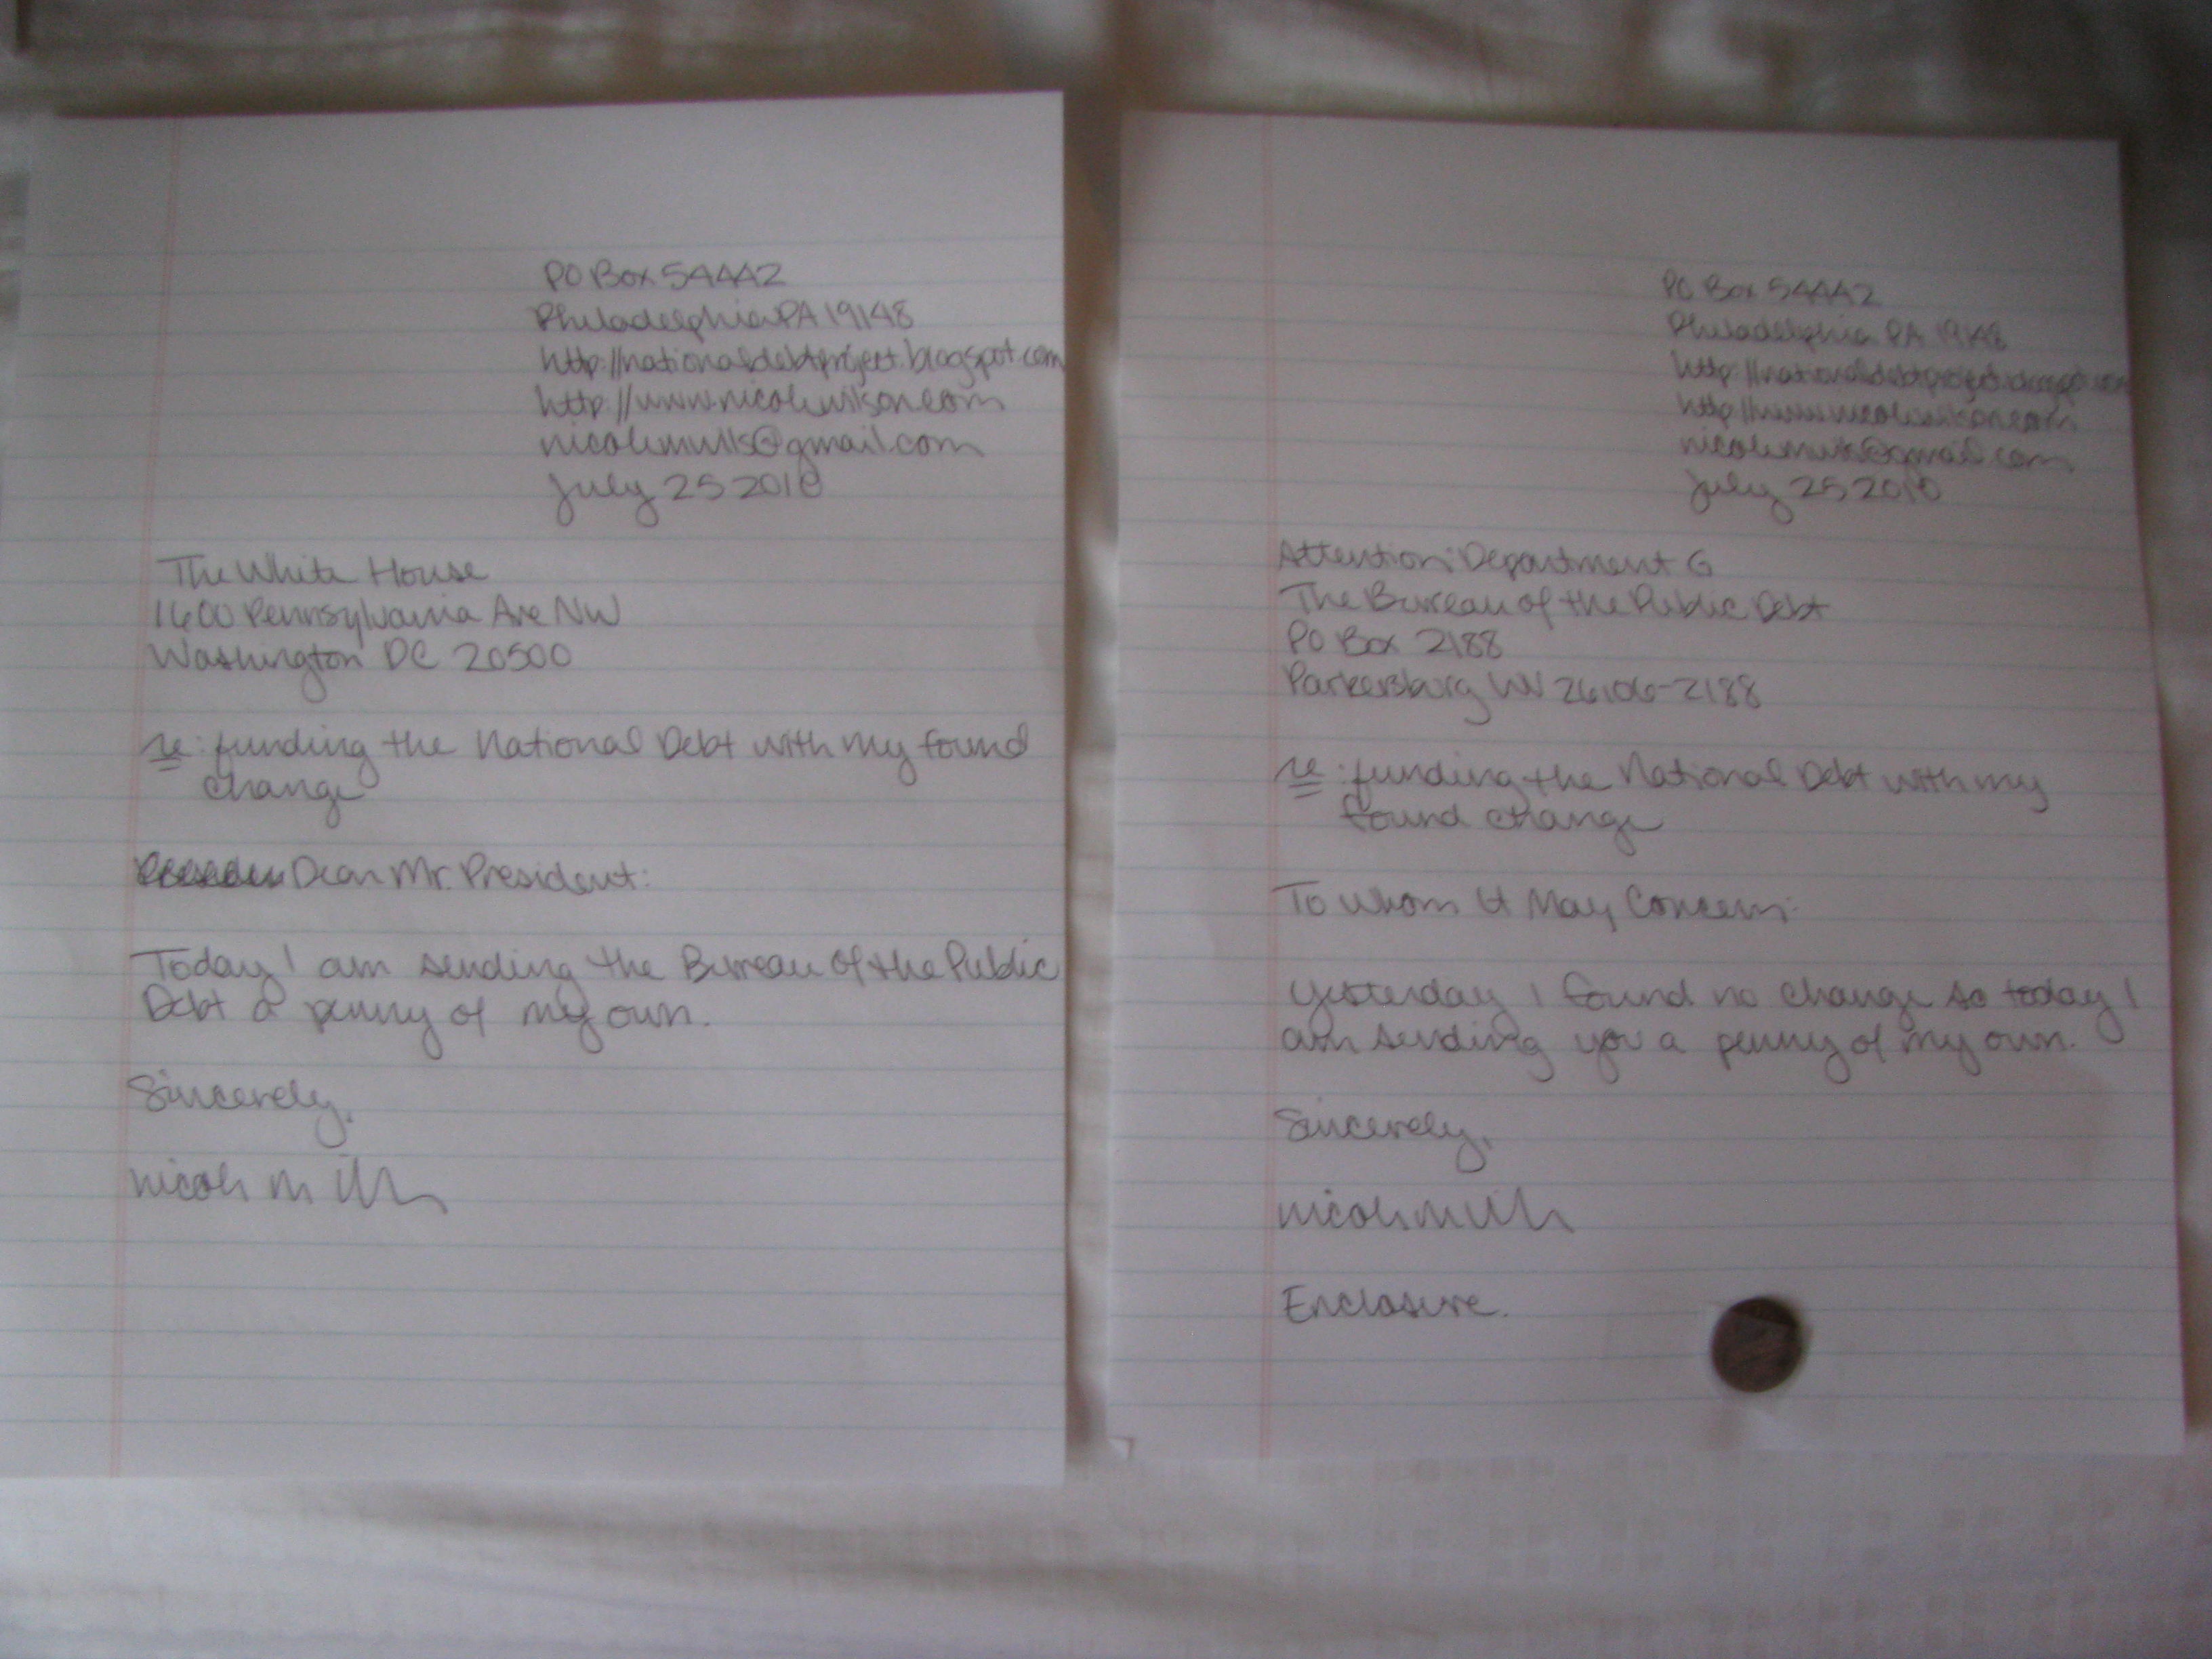 PO Box 54442
Philadelphia PA 19148
http://nationaldebtproject.blogspot.com
http://www.nicolewilson.com
nicolemwils@gmail.com
July 25 2010
The White House
1600 Pennsylvania Ave NW
Washington DC 20500
re: funding the National Debt with my found
change
Dear Mr. President:
Today I am sending the Bureau of the Public
Debt a penny of my own.
Sincerely,
PO Box 54442
Philadelphia PA 19148
http://nationaldebtproject.blogspot.com
http://www.nicolewilson.com
nicolemwils@gmail.com
July 25 2010
Attention: Department G
The Bureau of the Public Debt
PO Box 2188
Parkersburg WV 26106-2188
re: funding the National Debt with my
found change
To Whom It May Concern:
Yesterday I found no change so today I
am sending you a penny of my own.
Sincerely,
Enclosure.